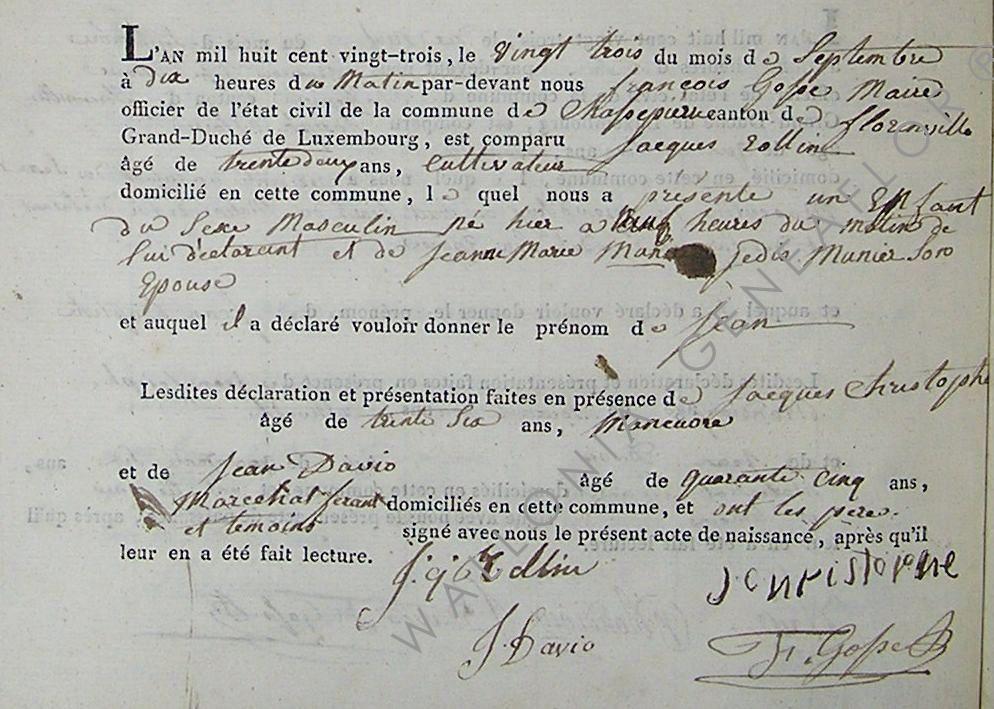 L'AN mil huit cent vingt-trois, le vingt trois du mois de Septembre
à dix heures du Matin par-devant nous françois Gosse Maire
officier de l'état civil de la commune de canton de florenville
Grand-Duché de Luxembourg, est comparu Jacques Rollin
âgé de trente deux ans, Cultivateur
domicilié en cette commune, le quel nous a présenté un Enfant
du Sexe Masculin né hier a heures du matin de
lui déclarant et de Jeanne Marie jedis Munier Son
Epouse
et auquel il a déclaré vouloir donner le prénom de Jean
Lesdites déclaration et présentation faites en présence de Jacques Christophe
âgé de trente Six ans, Manœuvre
et de Jean Davio âgé de quarante cinq ans,
Marechal ferant domiciliés en cette commune, et ont les père
et temoins signé avec nous le présent acte de naissance, après qu'il
leur en a été fait lecture.
J. Davio
Fr. Gosse
WALLONIA GENEALOR ®